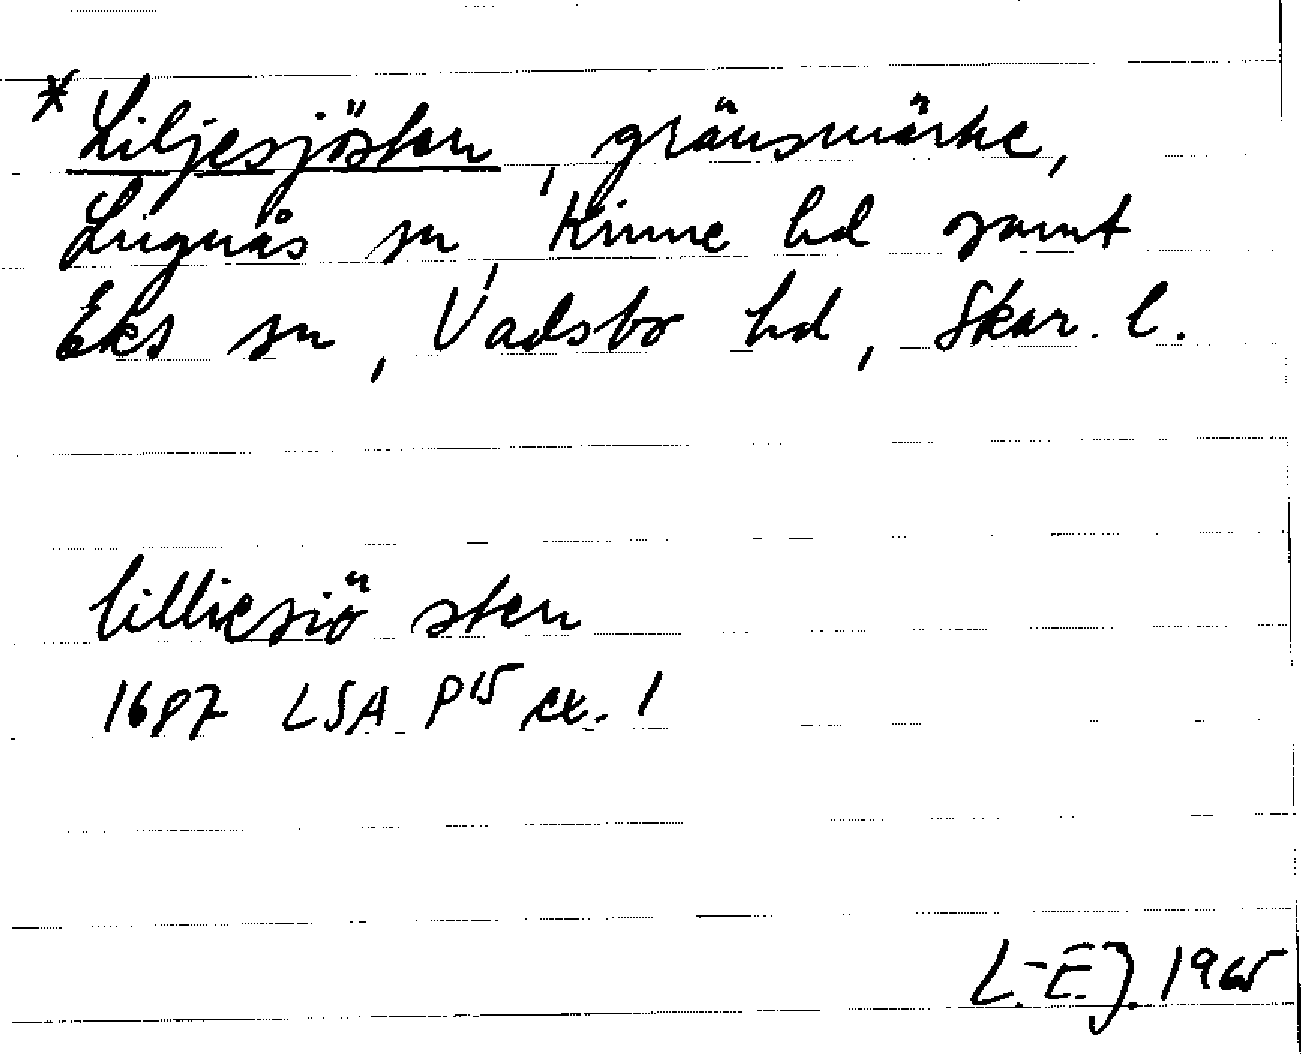 * Liljesjösten, gränsmärke,
Lugnås sn, Kinne hd samt
Eks sn, Vadsbo hd, Skar. l.
lilliesiö sten
1687 LSA P15 ex. 1
L.-E.J. 1965